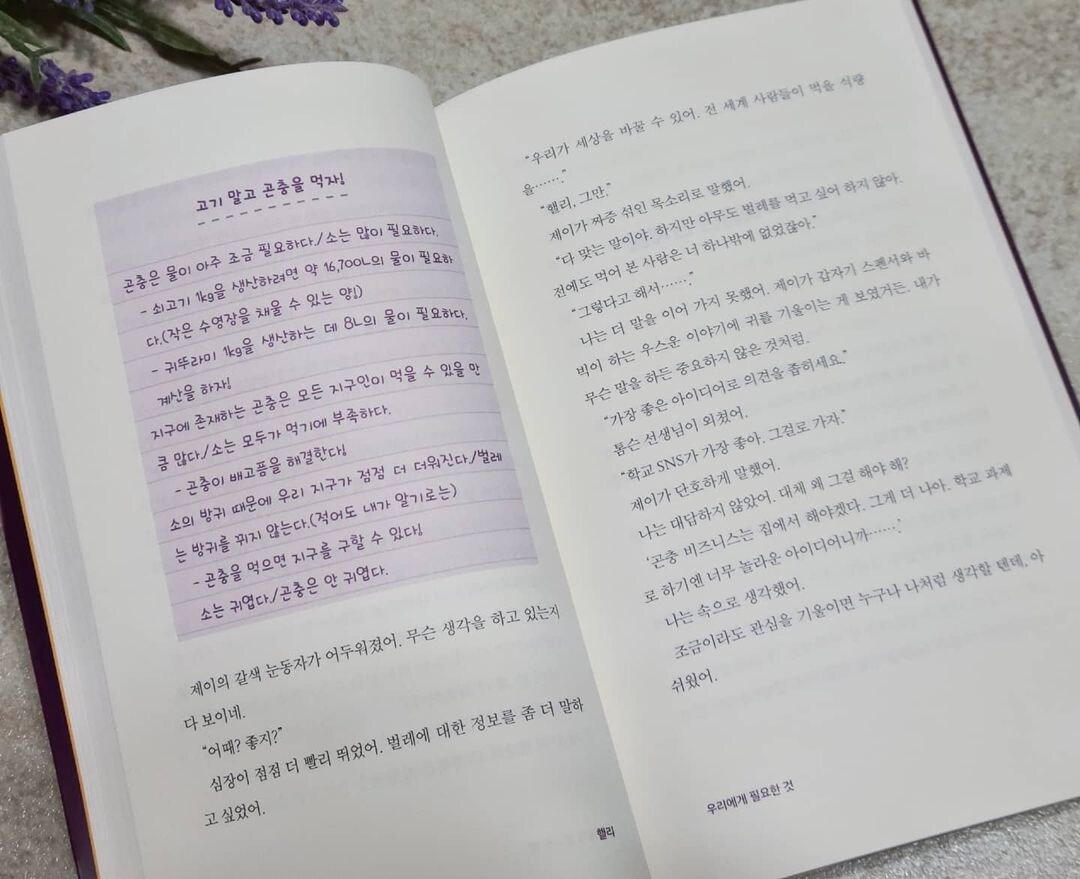 고기 말고 곤충을 먹자!
곤충은 물이 아주 조금 필요하다./소는 많이 필요하다.
- 쇠고기 1kg을 생산하려면 약 16,700L의 물이 필요하
다.(작은 수영장을 채울 수 있는 양!)
- 귀뚜라미 1kg을 생산하는 데 8L의 물이 필요하다.
계산을 하자!
지구에 존재하는 곤충은 모든 지구인이 먹을 수 있을 만
큼 많다./소는 모두가 먹기에 부족하다.
- 곤충이 배고픔을 해결한다!
소의 방귀 때문에 우리 지구가 점점 더 더워진다./벌레
는 방귀를 뀌지 않는다.(적어도 내가 알기로는)
- 곤충을 먹으면 지구를 구할 수 있다!
소는 귀엽다./곤충은 안 귀엽다.
제이의 갈색 눈동자가 어두워졌어. 무슨 생각을 하고 있는지
다 보이네.
“어때? 좋지?”
심장이 점점 더 빨리 뛰었어. 벌레에 대한 정보를 좀 더 말하
고 싶었어.
핼리
“우리가 세상을 바꿀 수 있어. 전 세계 사람들이 먹을 식량
을…….”
“핼리, 그만.”
제이가 짜증 섞인 목소리로 말했어.
“다 맞는 말이야. 하지만 아무도 벌레를 먹고 싶어 하지 않아.
전에도 먹어 본 사람은 너 하나밖에 없었잖아.”
“그렇다고 해서…….”
나는 더 말을 이어 가지 못했어. 제이가 갑자기 스펜서와 바
빅이 하는 우스운 이야기에 귀를 기울이는 게 보였거든. 내가
무슨 말을 하든 중요하지 않은 것처럼.
“가장 좋은 아이디어로 의견을 좁히세요.”
톰슨 선생님이 외쳤어.
“학교 SNS가 가장 좋아. 그걸로 가자.”
제이가 단호하게 말했어.
나는 대답하지 않았어. 대체 왜 그걸 해야 해?
‘곤충 비즈니스는 집에서 해야겠다. 그게 더 나아. 학교 과제
로 하기엔 너무 놀라운 아이디어니까…….’
나는 속으로 생각했어.
조금이라도 관심을 기울이면 누구나 나처럼 생각할 텐데, 아
쉬웠어.
우리에게 필요한 것